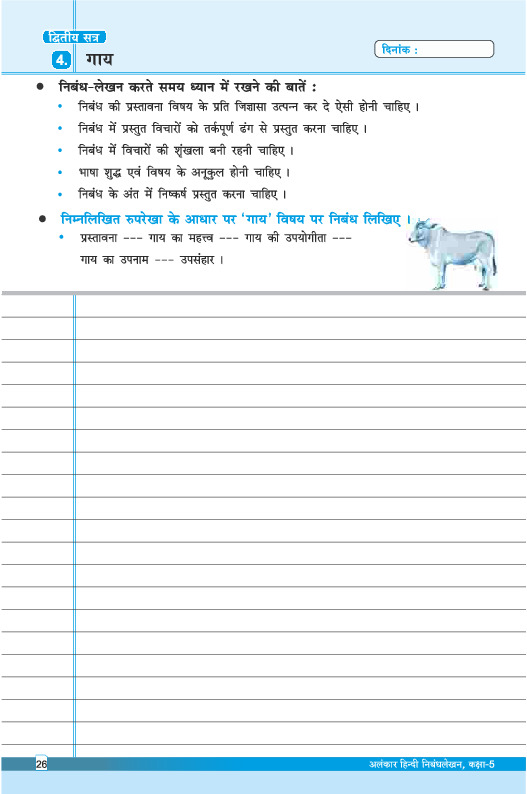 द्वितीय सत्र
4. गाय
दिनांक :
● निबंध-लेखन करते समय ध्यान में रखने की बातें :
• निबंध की प्रस्तावना विषय के प्रति जिज्ञासा उत्पन्न कर दे ऐसी होनी चाहिए ।
• निबंध में प्रस्तुत विचारों को तर्कपूर्ण ढंग से प्रस्तुत करना चाहिए ।
• निबंध में विचारों की शृंखला बनी रहनी चाहिए ।
• भाषा शुद्ध एवं विषय के अनूकुल होनी चाहिए ।
• निबंध के अंत में निष्कर्ष प्रस्तुत करना चाहिए ।
● निम्नलिखित रुपरेखा के आधार पर ‘गाय’ विषय पर निबंध लिखिए ।
• प्रस्तावना --- गाय का महत्त्व --- गाय की उपयोगीता ---
गाय का उपनाम --- उपसंहार ।
26
अलंकार हिन्दी निबंधलेखन, कक्षा-5